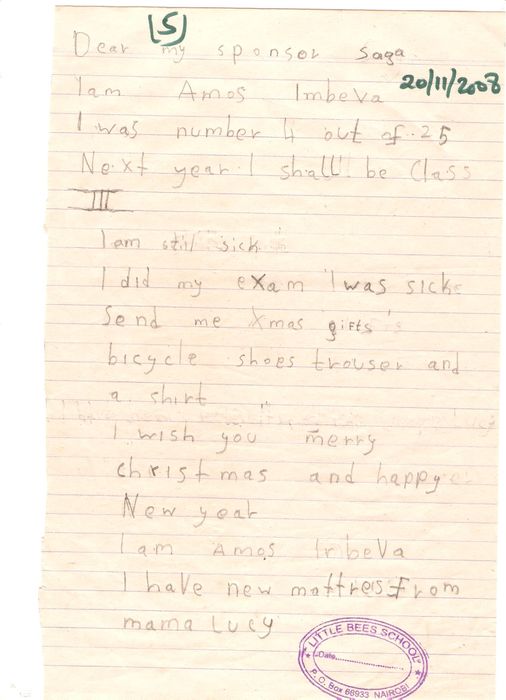 (5)
Dear my sponsor saga
20/11/2008
I am Amos Imbeva
I was number 4 out of 25
Next year I shall be Class
III
I am still sick
I did my exam I was sick
Send me Xmas gifts
bicycle shoes trouser and
a shirt
I wish you merry
christmas and happy
New year
I am Amos Irbeva
I have new mattres From
mama Lucy
LITTLE BEES SCHOOL
Date
P. O. Box 66933 NAIROBI